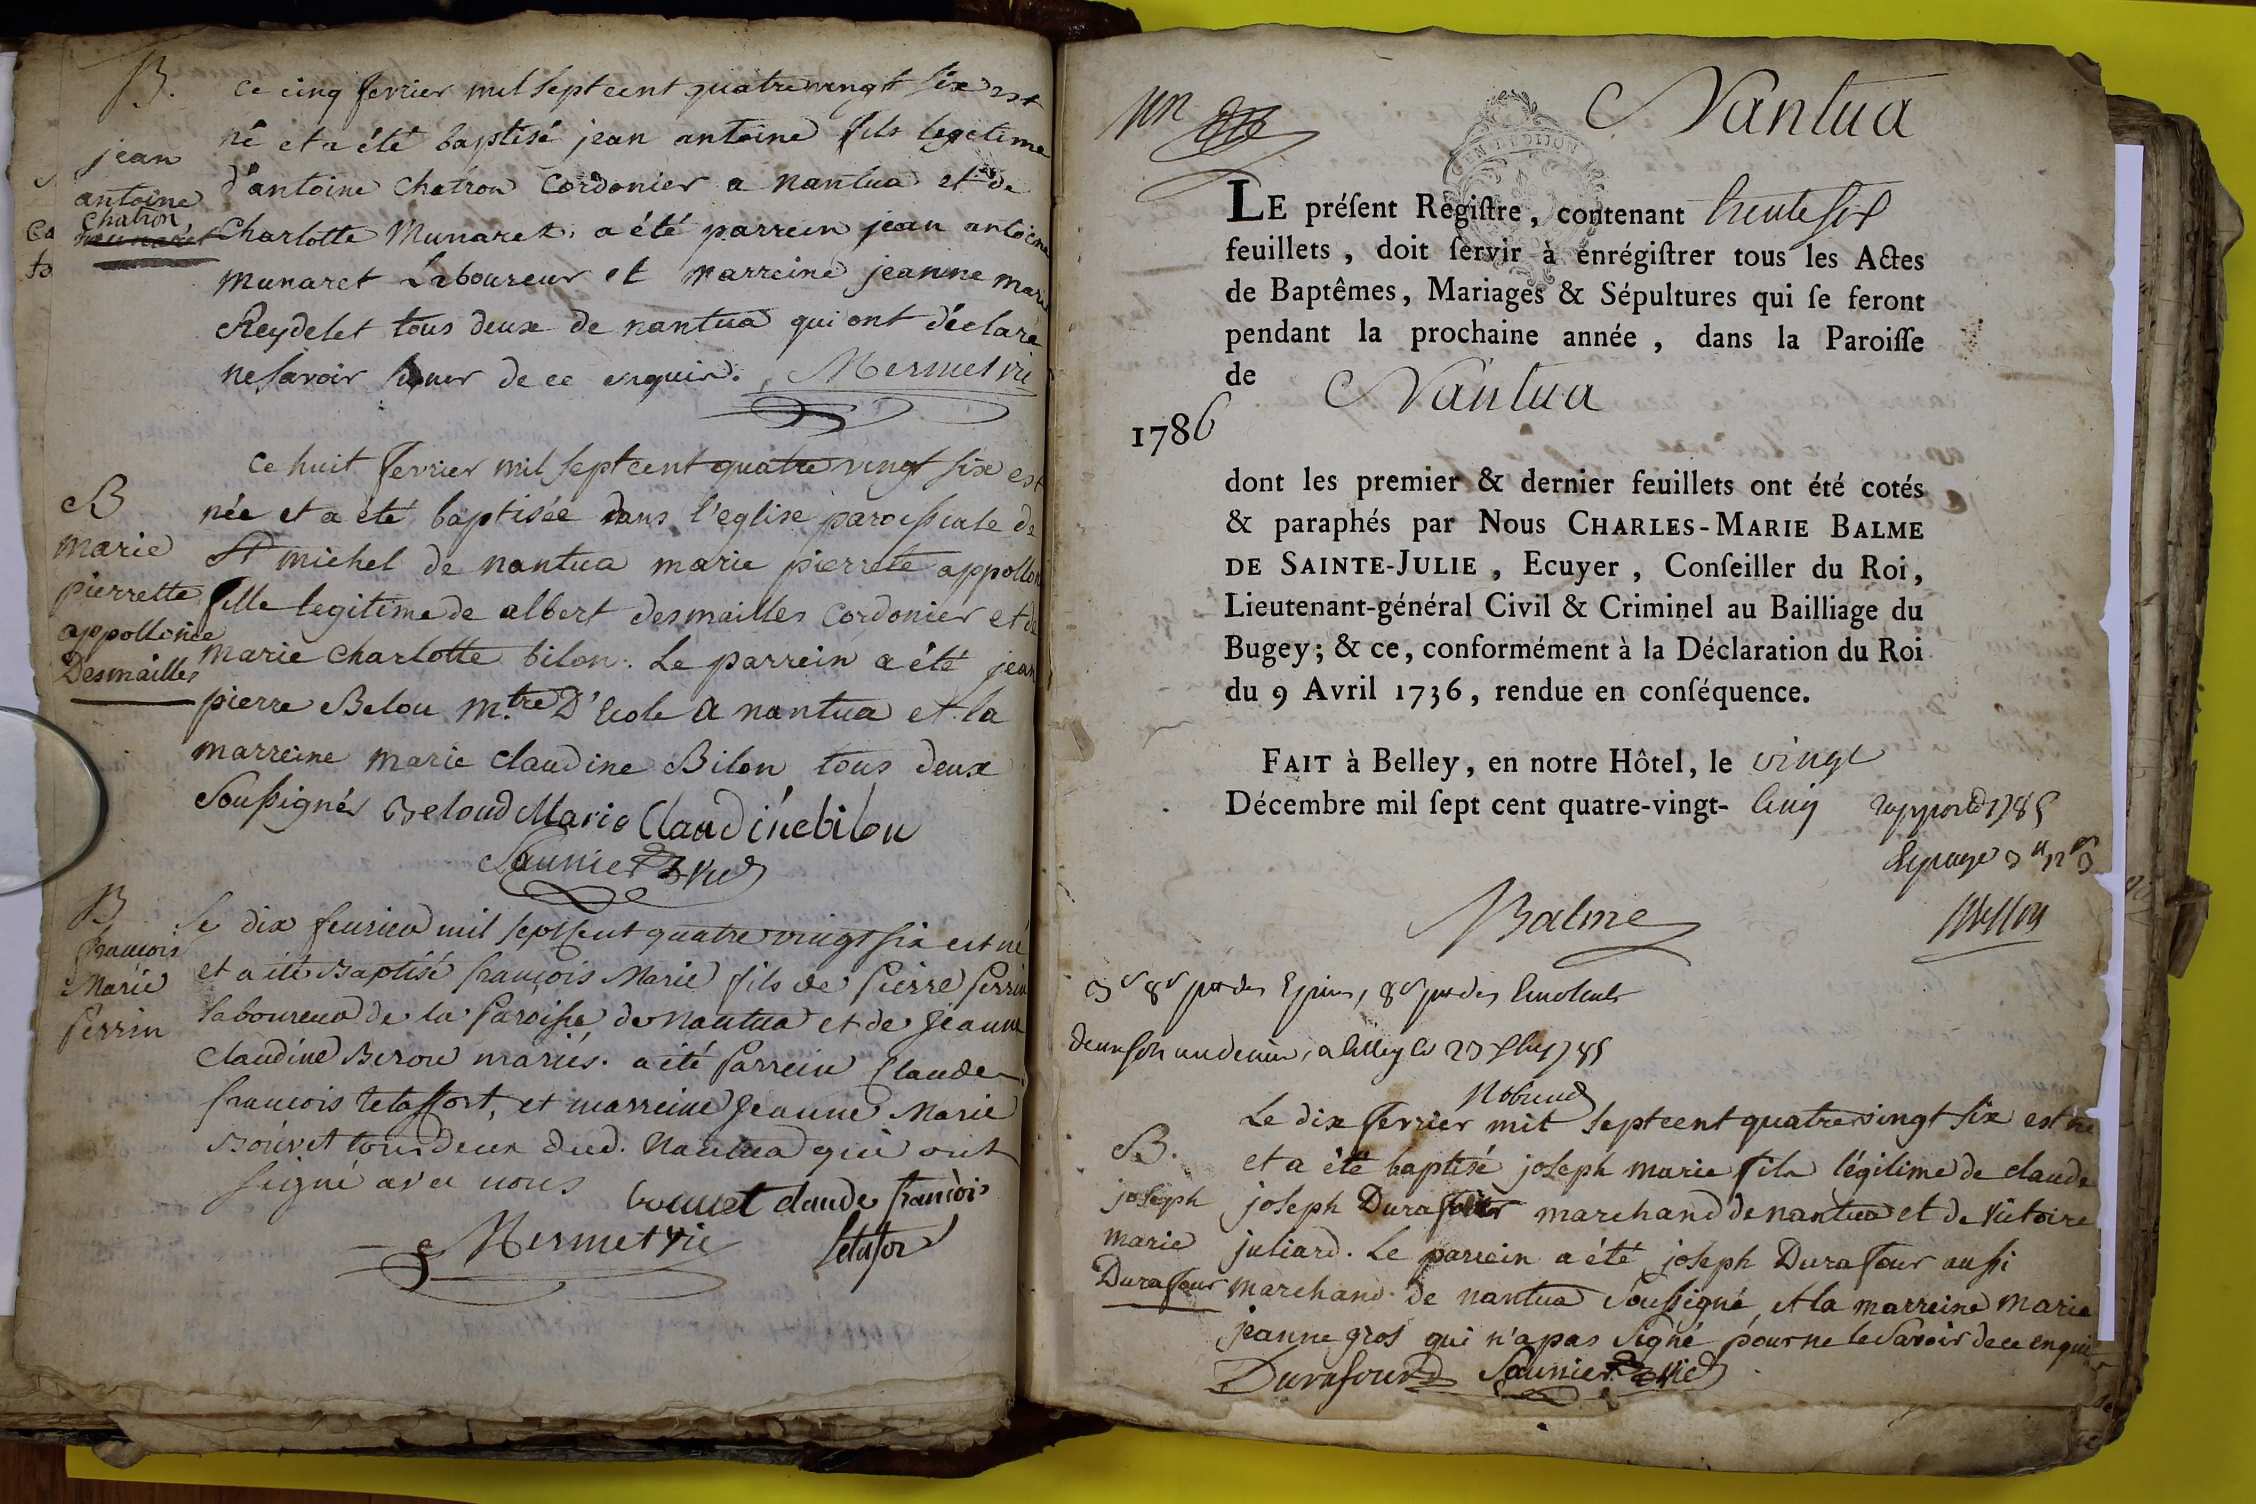 B.
jean
antoine
chatron
munaret
ce cinq fevrier mil sept cent quatre vingt six est
né et a été baptisé jean antoine fils legetime
d'antoine chatron cordonier a nantua et de
charlotte Munaret. a été parrein jean antoine
munaret Laboureur et marreine jeanne marie
Reydelet tous deux de nantua qui ont déclaré
ne savoir signer de ce enquis. Mermet vic
B
marie
pierrette
appollonie
Desmailles
ce huit fevrier mil sept cent quatre vingt six est
née et a été baptisée dans l'eglise paroissiale de
St michel de nantua marie pierrete appollon
fille legitime de albert desmailles cordonier et de
marie charlotte bilon. Le parrein a été jean
pierre Belou M.tre D'Ecole a nantua et la
marreine marie claudine Bilon tous deux
soussignés Beloud Marie Claudine bilon
Saunier vic
B
françois
Marie
perrin
le dix feurier mil sept cent quatre vingt six est né
et a été Baptisé françois Marie fils de pierre perrin
laboureur de la paroisse de Nantua et de jeanne
claudine Berou mariés. a été parrein Claude
françois letaffort, et marreine jeanne Marie
Bouvet tous deux dud. Nantua qui ont
signé avec nous bouvet claude françois
Mermet vic letafor
Nantua
LE préſent Regiſtre, contenant trente six
feuillets, doit ſervir à enrégiſtrer tous les Actes
de Baptêmes, Mariages & Sépultures qui ſe feront
pendant la prochaine année, dans la Paroiſſe
de Nantua
1786
dont les premier & dernier feuillets ont été cotés
& paraphés par Nous CHARLES-MARIE BALME
DE SAINTE-JULIE, Ecuyer, Conſeiller du Roi,
Lieutenant-général Civil & Criminel au Bailliage du
Bugey; & ce, conformément à la Déclaration du Roi
du 9 Avril 1736, rendue en conſéquence.
FAIT à Belley, en notre Hôtel, le vingt
Décembre mil ſept cent quatre-vingt- cinq
Balme
B.
joseph
marie
Durafour
Le dix fevrier mil sept cent quatre vingt six est né
et a été baptisé joseph marie fils légitime de claude
joseph Durafour marchand de nantua et de victoire
juliard. Le parrein a été joseph Durafour aussi
marchand de nantua soussigné et la marreine marie
jeanne gros qui n'a pas signé pour ne le savoir de ce enquis
Durafourd Saunier vic